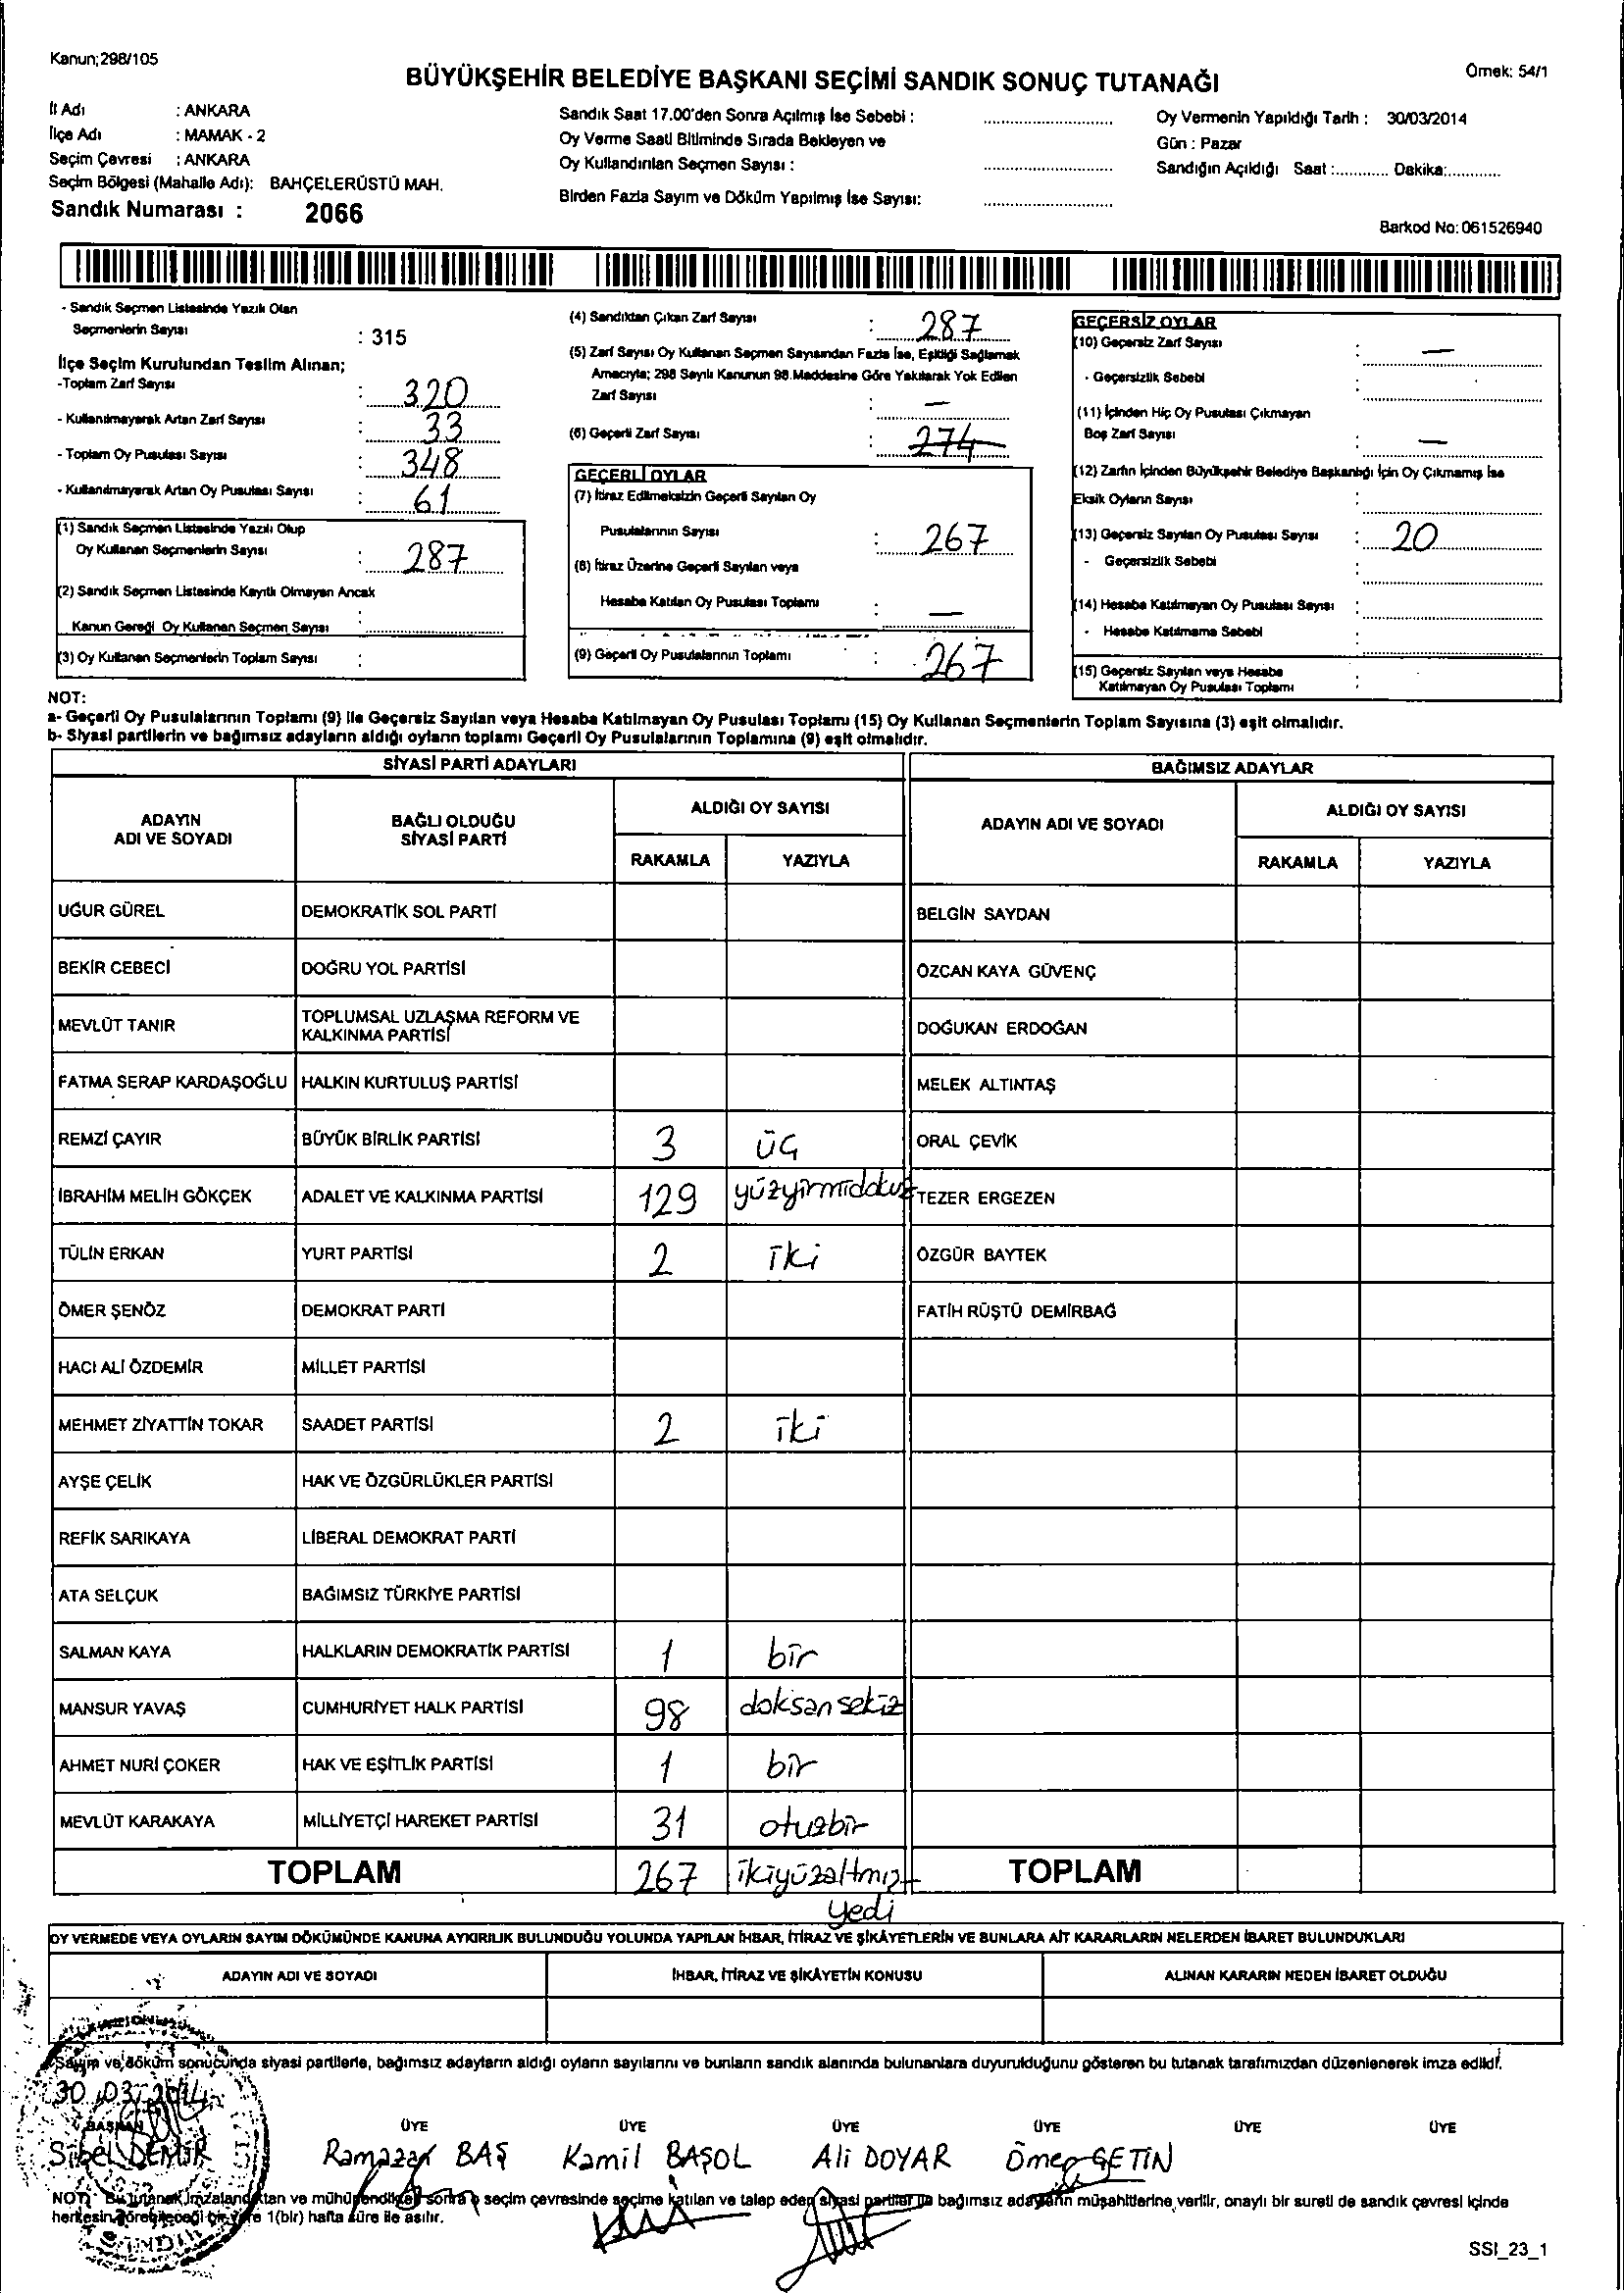 Kanun;298/105
Örnek: 54/1
BÜYÜKŞEHİR BELEDİYE BAŞKANI SEÇİMİ SANDIK SONUÇ TUTANAĞI
İl Adı : ANKARA
İlçe Adı : MAMAK - 2
Seçim Çevresi : ANKARA
Seçim Bölgesi (Mahalle Adı): BAHÇELERÜSTÜ MAH.
Sandık Numarası : 2066
Sandık Saat 17.00'den Sonra Açılmış İse Sebebi :
Oy Verme Saati Bitiminde Sırada Bekleyen ve
Oy Kullandırılan Seçmen Sayısı :
Birden Fazla Sayım ve Döküm Yapılmış İse Sayısı:
Oy Vermenin Yapıldığı Tarih : 30/03/2014
Gün : Pazar
Sandığın Açıldığı Saat :............ Dakika:............
Barkod No: 061526940
- Sandık Seçmen Listesinde Yazılı Olan
Seçmenlerin Sayısı : 315
İlçe Seçim Kurulundan Teslim Alınan;
-Toplam Zarf Sayısı : 320
- Kullanılmayarak Artan Zarf Sayısı : 33
- Toplam Oy Pusulası Sayısı : 348
- Kullanılmayarak Artan Oy Pusulası Sayısı : 61
(1) Sandık Seçmen Listesinde Yazılı Olup
Oy Kullanan Seçmenlerin Sayısı : 287
(2) Sandık Seçmen Listesinde Kayıtlı Olmayan Ancak
Kanun Gereği Oy Kullanan Seçmen Sayısı :
(3) Oy Kullanan Seçmenlerin Toplam Sayısı :
(4) Sandıktan Çıkan Zarf Sayısı : 287
(5) Zarf Sayısı Oy Kullanan Seçmen Sayısından Fazla İse, Eşitliği Sağlamak
Amacıyla; 298 Sayılı Kanunun 98.Maddesine Göre Yakılarak Yok Edilen
Zarf Sayısı : —
(6) Geçerli Zarf Sayısı : 274
GEÇERLİ OYLAR
(7) İtiraz Edilmeksizin Geçerli Sayılan Oy
Pusulalarının Sayısı : 267
(8) İtiraz Üzerine Geçerli Sayılan veya
Hesaba Katılan Oy Pusulası Toplamı : —
(9) Geçerli Oy Pusulalarının Toplamı : 267
GEÇERSİZ OYLAR
(10) Geçersiz Zarf Sayısı : —
- Geçersizlik Sebebi :
(11) İçinden Hiç Oy Pusulası Çıkmayan
Boş Zarf Sayısı : —
(12) Zarfın İçinden Büyükşehir Belediye Başkanlığı İçin Oy Çıkmamış İse
Eksik Oyların Sayısı :
(13) Geçersiz Sayılan Oy Pusulası Sayısı : 20
- Geçersizlik Sebebi :
(14) Hesaba Katılmayan Oy Pusulası Sayısı :
- Hesaba Katılmama Sebebi :
(15) Geçersiz Sayılan veya Hesaba
Katılmayan Oy Pusulası Toplamı :
NOT:
a- Geçerli Oy Pusulalarının Toplamı (9) ile Geçersiz Sayılan veya Hesaba Katılmayan Oy Pusulası Toplamı (15) Oy Kullanan Seçmenlerin Toplam Sayısına (3) eşit olmalıdır.
b- Siyasi partilerin ve bağımsız adayların aldığı oyların toplamı Geçerli Oy Pusulalarının Toplamına (9) eşit olmalıdır.
SİYASİ PARTİ ADAYLARI
BAĞIMSIZ ADAYLAR
ADAYIN ADI VE SOYADI
BAĞLI OLDUĞU SİYASİ PARTİ
ALDIĞI OY SAYISI
RAKAMLA YAZIYLA
ADAYIN ADI VE SOYADI
ALDIĞI OY SAYISI
RAKAMLA YAZIYLA
UĞUR GÜREL DEMOKRATİK SOL PARTİ BELGİN SAYDAN
BEKİR CEBECİ DOĞRU YOL PARTİSİ ÖZCAN KAYA GÜVENÇ
MEVLÜT TANIR TOPLUMSAL UZLAŞMA REFORM VE KALKINMA PARTİSİ DOĞUKAN ERDOĞAN
FATMA SERAP KARDAŞOĞLU HALKIN KURTULUŞ PARTİSİ MELEK ALTINTAŞ
REMZİ ÇAYIR BÜYÜK BİRLİK PARTİSİ 3 üç ORAL ÇEVİK
İBRAHİM MELİH GÖKÇEK ADALET VE KALKINMA PARTİSİ 129 yüzyirmidokuz TEZER ERGEZEN
TÜLİN ERKAN YURT PARTİSİ 2 iki ÖZGÜR BAYTEK
ÖMER ŞENÖZ DEMOKRAT PARTİ FATİH RÜŞTÜ DEMİRBAĞ
HACI ALİ ÖZDEMİR MİLLET PARTİSİ
MEHMET ZİYATTİN TOKAR SAADET PARTİSİ 2 iki
AYŞE ÇELİK HAK VE ÖZGÜRLÜKLER PARTİSİ
REFİK SARIKAYA LİBERAL DEMOKRAT PARTİ
ATA SELÇUK BAĞIMSIZ TÜRKİYE PARTİSİ
SALMAN KAYA HALKLARIN DEMOKRATİK PARTİSİ 1 bir
MANSUR YAVAŞ CUMHURİYET HALK PARTİSİ 98 doksansekiz
AHMET NURİ ÇOKER HAK VE EŞİTLİK PARTİSİ 1 bir
MEVLÜT KARAKAYA MİLLİYETÇİ HAREKET PARTİSİ 31 otuzbir
TOPLAM 267 ikiyüzaltmış TOPLAM
yedi
OY VERMEDE VEYA OYLARIN SAYIM DÖKÜMÜNDE KANUNA AYKIRILIK BULUNDUĞU YOLUNDA YAPILAN İHBAR, İTİRAZ VE ŞİKÂYETLERİN VE BUNLARA AİT KARARLARIN NELERDEN İBARET BULUNDUKLARI
ADAYIN ADI VE SOYADI İHBAR, İTİRAZ VE ŞİKÂYETİN KONUSU ALINAN KARARIN NEDEN İBARET OLDUĞU
Sayım ve döküm sonucunda siyasi partilerle, bağımsız adayların aldığı oyların sayılarını ve bunların sandık alanında bulunanlara duyurulduğunu gösteren bu tutanak tarafımızdan düzenlenerek imza edildi.
30.03.2014
BAŞKAN ÜYE ÜYE ÜYE ÜYE ÜYE ÜYE
Sibel DEMİR Ramazan BAŞ Kamil BAŞOL Ali DOYAR Ömer ÇETİN
NOT: Bu tutanak imzalandıktan ve mühürlendikten sonra o seçim çevresinde seçime katılan ve talep eden siyasi partiler ile bağımsız adayların müşahitlerine verilir, onaylı bir sureti de sandık çevresi içinde
herkesin görebileceği bir yere 1(bir) hafta süre ile asılır.
SSI_23_1